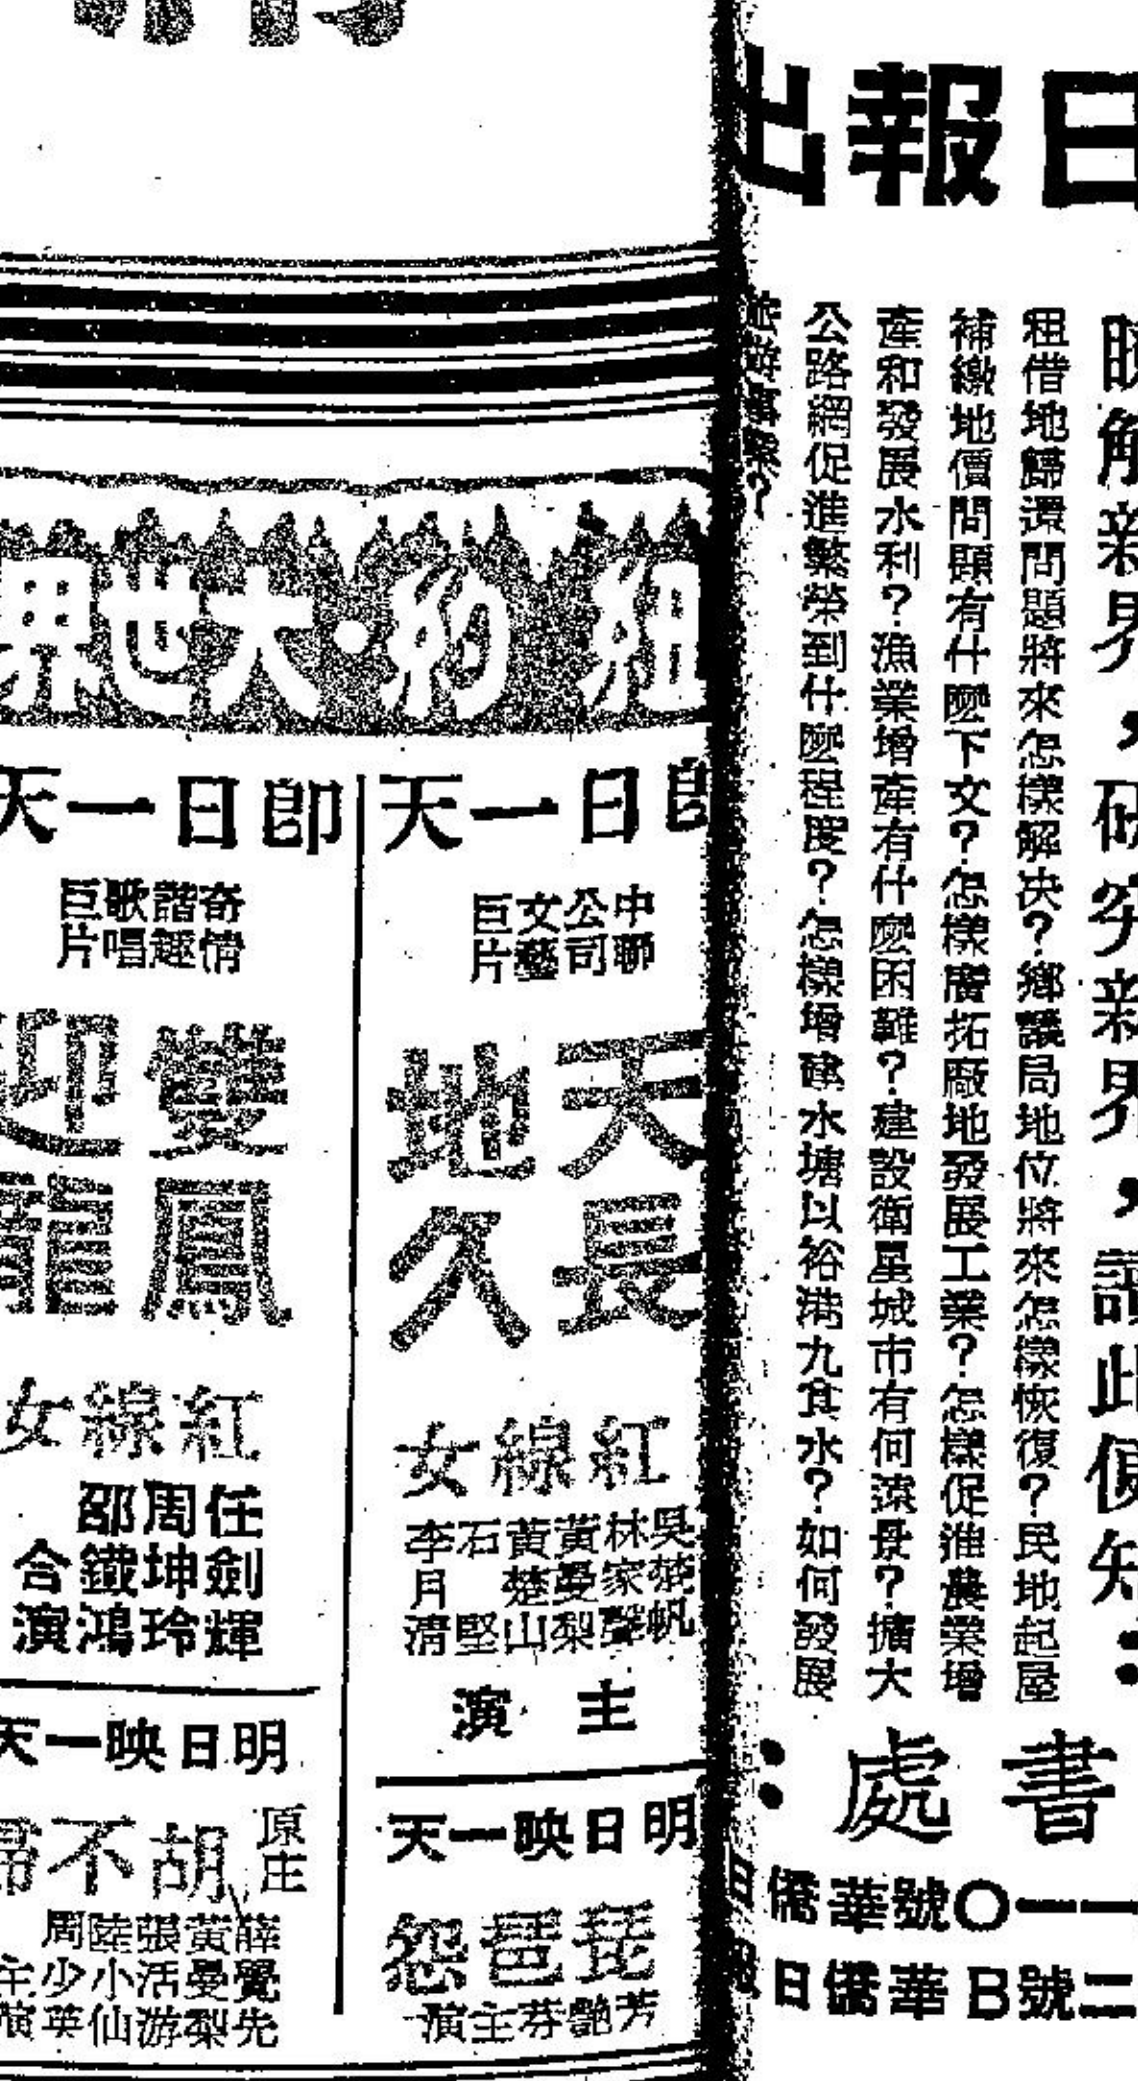 日報出
瞭解新界，研究新界，讀此便知：
租借地歸還問題將來怎樣解决？鄉議局地位將來怎樣恢復？民地起屋
補繳地價問題有什麽下文？怎樣廣拓廠地發展工業？怎樣促進農業增
產和發展水利？漁業增產有什麽困難？建設衛星城市有何遠景？擴大
公路網促進繁榮到什麽程度？怎樣增建水塘以裕港九食水？如何發展
旅遊事業？
書處：
一一〇號華僑日
二號B華僑日報
紐約·大世界
即日一天
中聯公司文藝巨片
天長地久
紅線女
吳楚帆
林家聲
黃曼梨
黃楚山
石堅
李月清
主演
明日映一天
琵琶怨
芳艷芬主演
即日一天
奇情諧趣歌唱巨片
雙鳳迎龍
紅線女
任劍輝
周坤玲
鄧鐵鴻
合演
明日映一天
原庄
胡不歸
薛覺先
黃曼梨
張活游
陸小仙
周少英
主演